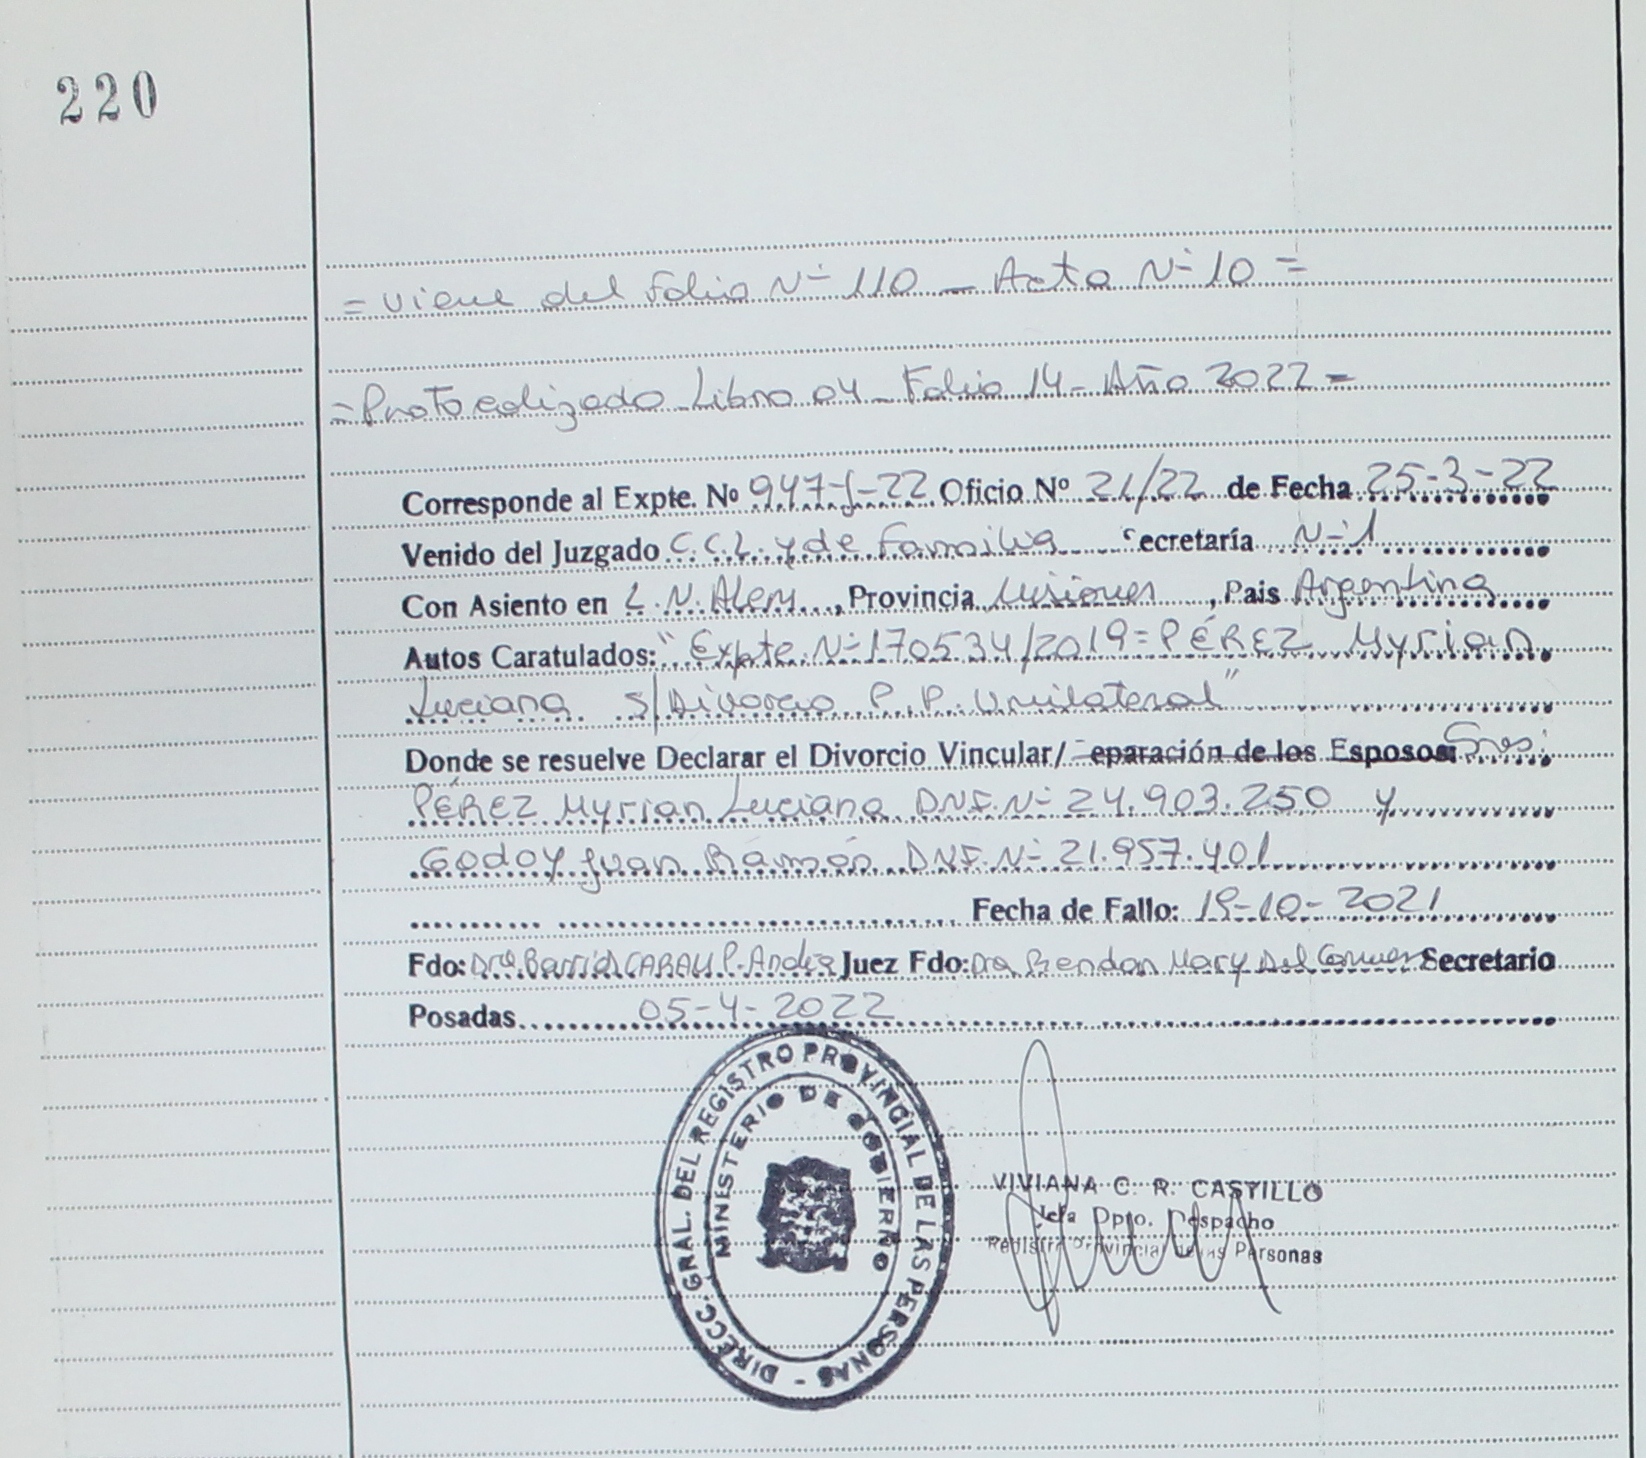 220
= Viene del Folio Nº 110 _ Acta Nº 10 =
= Protocolizado Libro 04 _ Folio 14 _ Año 2022 =
Corresponde al Expte. Nº 947-J-22 Oficio Nº 21/22 de Fecha 25-3-22
Venido del Juzgado C.C.L. y de Familia Secretaría Nº 1
Con Asiento en L. N. Alem, Provincia Misiones, Pais Argentina
Autos Caratulados: "Expte. Nº 170534/2019 = PÉREZ Myrian
Luciana s/Divorcio P.P. Unilateral"
Donde se resuelve Declarar el Divorcio Vincular/ Separación de los Esposos: Sres:
PÉREZ Myrian Luciana DNI. Nº 24.903.250 y
GODOY Juan Ramón DNI. Nº 21.957.401
Fecha de Fallo: 19-10-2021
Fdo: Dra. P. Andrea Juez Fdo: Dra Mary Del Carmen Secretario
Posadas 05-4-2022
DIRECC. GRAL. DEL REGISTRO PROVINCIAL DE LAS PERSONAS -
MINISTERIO DE GOBIERNO
VIVIANA C. R. CASTILLO
Jefa Dpto. Despacho
Registro Provincial de las Personas